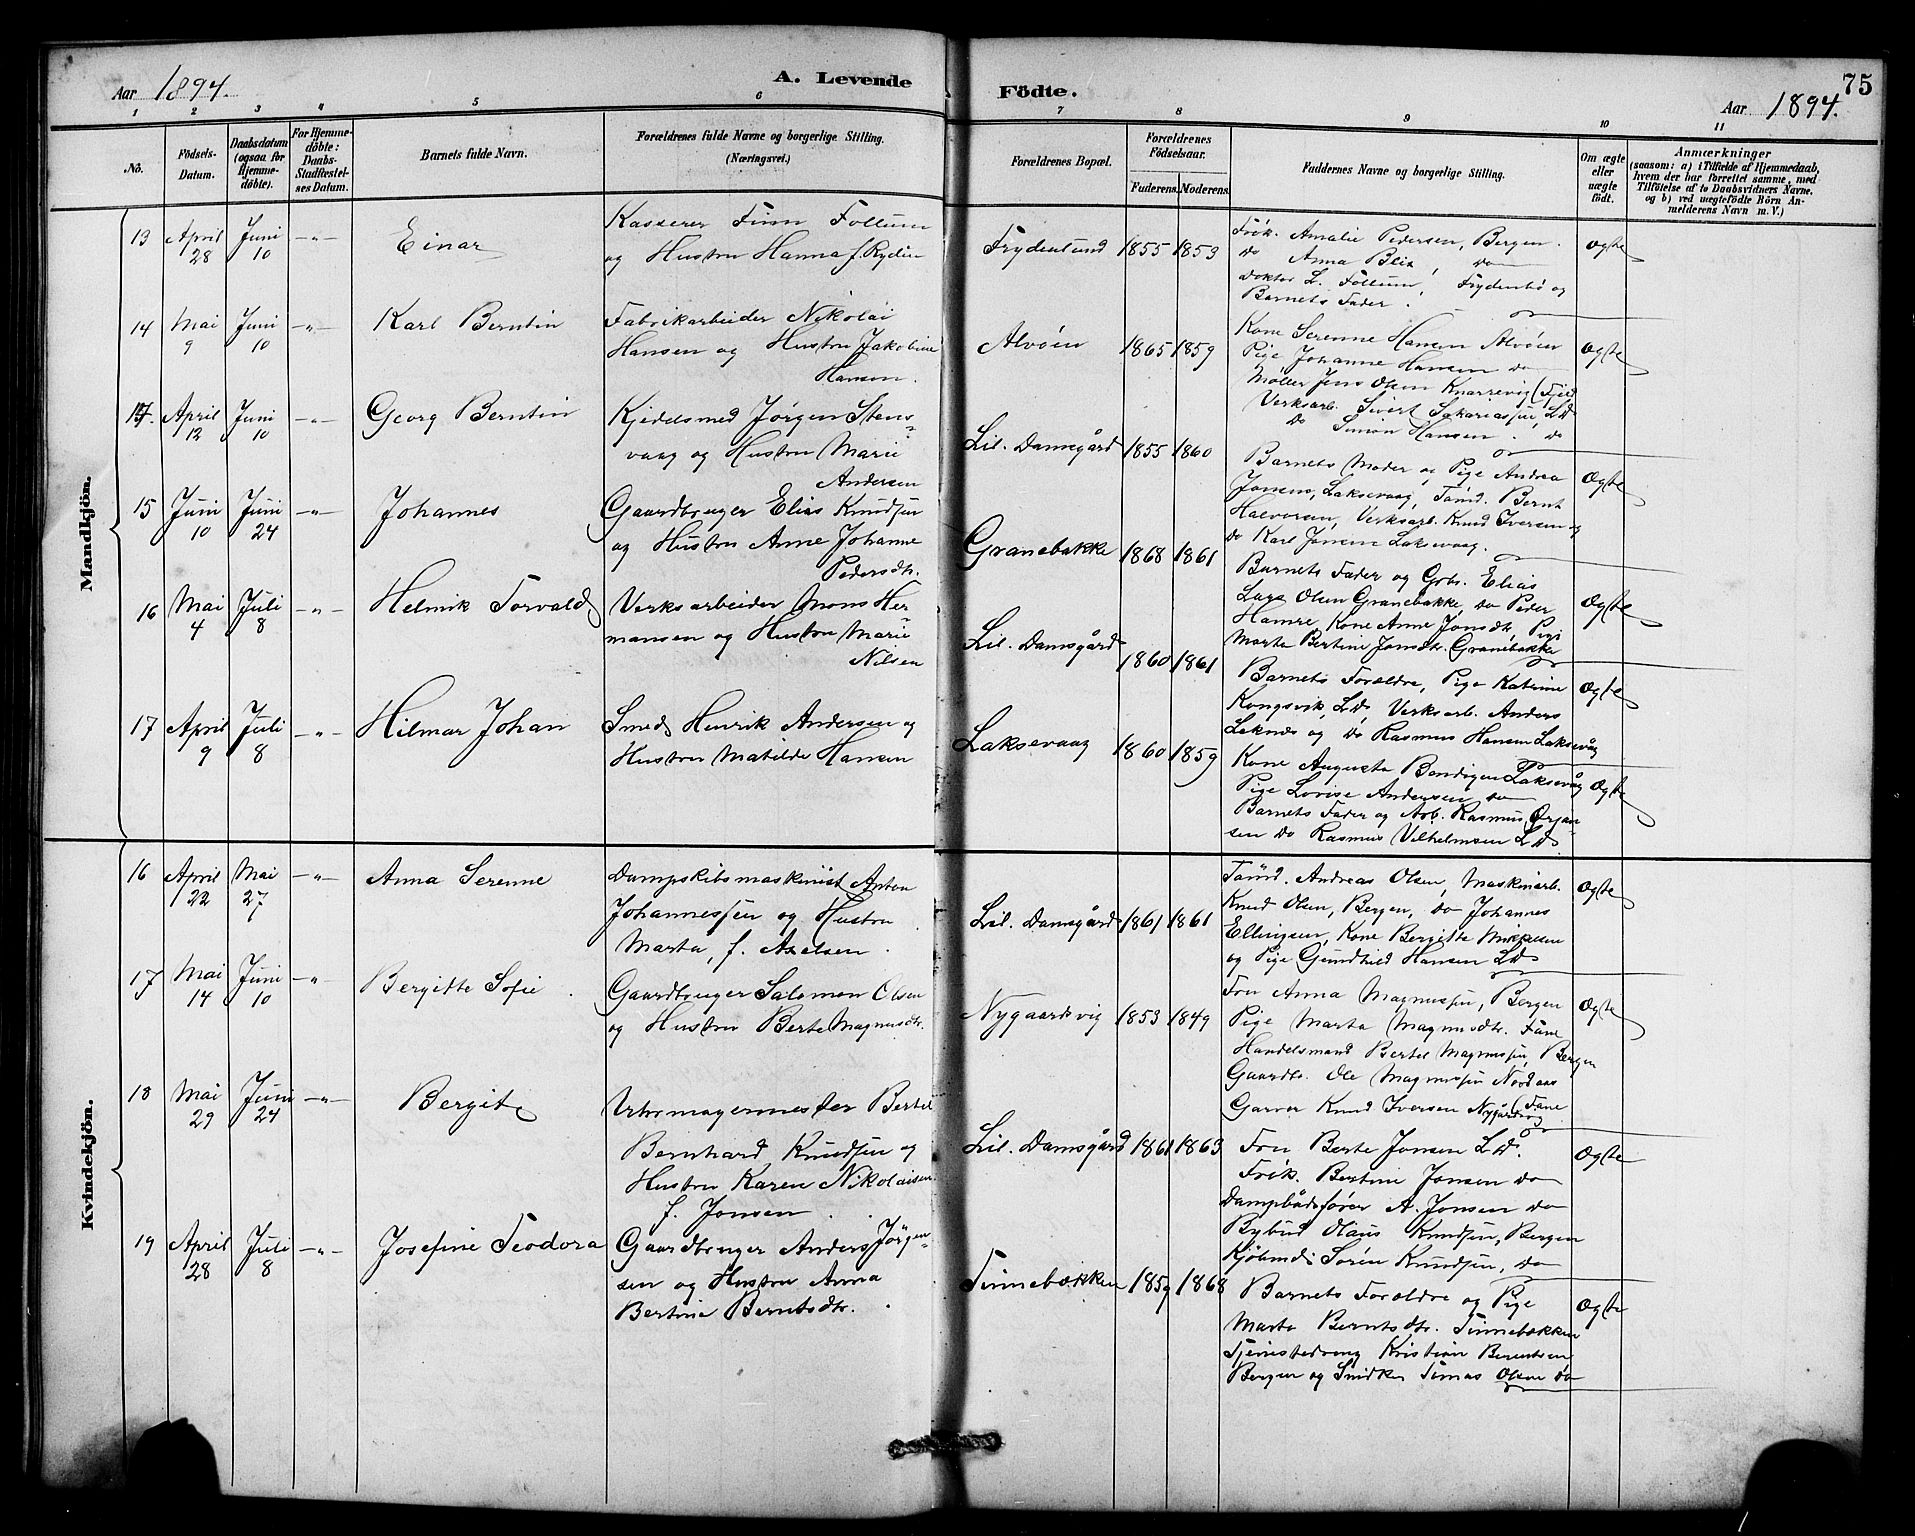 Aar 1894.
A. Levende
Födte.
75
Aar 1894.
1 2 3 4 5 6 7 8 9 10 11
No.
Födsels-Datum.
Daabsdatum (ogsaa for Hjemme-döbte).
For Hjemme-döbte: Daabs-Stadfæstelses Datum.
Barnets fulde Navn.
Forældrenes fulde Navne og borgerlige Stilling. (Næringsvei.)
Forældrenes Bopæl.
Forældrenes Födselsaar.
Faderens. Moderens.
Faddernes Navne og borgerlige Stilling.
Om ægte eller uægte födt.
Anmærkninger
(saasom: a) i Tilfælde af Hjemmedaab,
hvem der har forrettet samme, med
Tilföielse af to Daabsvidners Navne,
og b) ved uægtefödte Börn An-
melderens Navn m. V.)
Mandkjön.
13 April 28 Juni 10 -"- Einar
Kasserer Finn Follum
og Hustru Hanna f. Rydin
Frydenlund 1855 1853
Frök. Amalie Pedersen, Bergen.
do Anna Blix, do
Doktor L. Follum, Frydenbö og
Barnets Fader.
Ægte
14 Mai 9 Juni 10 -"- Karl Berntin
Fabrikarbeider Nikolai
Hansen og Hustru Jakobine
Hansen.
Alvöen 1865 1859
Kone Serenne Hansen Alvöen
Pige Johanne Hansen do
Möller Jens Olsen Knarrevig (Fjeld
Verksarb. Sivert Sakariassen, L.D.
do Simon Hansen. do
Ægte
April 12 Juni 10 -"- Georg Berntin
Kjedelsmed Jörgen Stens-
vaag og Hustru Marie
Andersen
Lil. Damsgård 1855 1860
Barnets Moder og Pige Andrea
Jonsen, Laksevaag, Tömd. Bernt
Halvorsen, Verksarb. Knud Iversen og
do Karl Jonsen Laksevaag.
Ægte
15 Juni 10 Juni 24 -"- Johannes
Gaardbruger Elias Knudsen
og Hustru Anne Johanne
Pedersdtr.
Granebakke 1868 1861
Barnets Fader og Grbr. Elias
Lars Olsen Granebakke, do Peder
Hamre, Kone Anne Jonsdtr, Pige
Marta Bertine Jonsdtr. Granebakke
Ægte
16 Mai 4 Juli 8 -"- Helmik Torvald
Verksarbeider Mons Her-
mansen og Hustru Marie
Nilsen
Lil. Damsgård 1860 1861
Barnets Forældre, Pige Katrine
Kongsvik, L.D. Verksarb. Anders
Laknes og do Rasmus Hansen Laksevåg
Ægte
17 April 9 Juli 8 -"- Hilmar Johan
Smed Henrik Andersen og
Hustru Matilde Hansen
Laksevaag 1860 1859
Kone Augusta Bendixen Laksevåg
Pige Lovise Andersen do
Barnets Fader og Arb. Rasmus Örjan-
sen do Rasmus Vilhelmsen L.D.
Ægte
Kvindekjön.
16 April 22 Mai 27 -"- Anna Serenne
Dampskibsmaskinist Anton
Johannessen og Hustru
Marta, f. Axelsen.
Lil. Damsgård 1861 1861
Tömd. Andreas Olsen, Maskinarb.
Knud Olsen, Bergen, do Johannes
Ellingsen, Kone Bergitte Mikkelsen
og Pige Gundhild Hansen L.D.
Ægte
17 Mai 14 Juni 10 -"- Bergitte Sofie.
Gaardbruger Salomon Olsen
og Hustru Berte Magnusdtr.
Nygaardsvig 1853 1849
Fru Anna Magnussen, Bergen
Pige Marta Magnusdtr. Fane
Handelsmand Bertel Magnussen, Bergen
Gaardbr. Ole Magnussen Nordaas
Garver Knud Iversen Nygårdsvig (Fane
Ægte
18 Mai 29 Juni 24 -"- Bergit
Urtemagermester Bertel
Bernhard Knudsen og
Hustru Karen Nikolaisen
f. Jonsen.
Lil. Damsgård 1861 1863
Fru Berte Jonsen L.D.
Frök. Bertine Jonsen do
Dampbådsförer A. Jonsen do
Bybud Olaus Knudsen, Bergen
Kjöbmd. Sören Knudsen, do
Ægte
19 April 28 Juli 8 -"- Josefine Teodora
Gaardbruger Anders Jörgen-
sen og Hustru Anna
Bertine Berntsdtr.
Tinnebækken 1859 1868
Barnets Forældre og Pige
Marta Berntsdtr. Tinnebækken
Tjenestedreng Kristian Berentsen
Bergen og Snidker Tomas Olsen do
Ægte